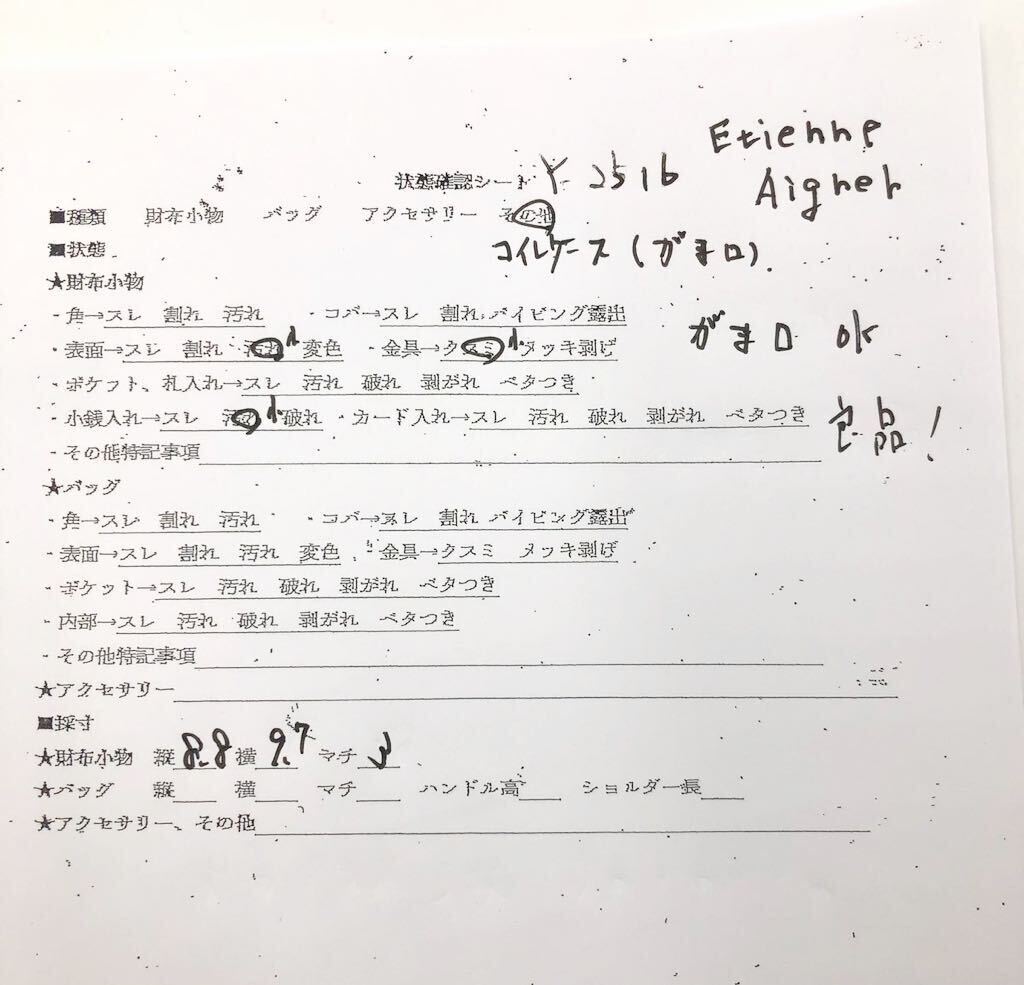 Etienne
状態確認シート Y-2516 Aigner
■種類 財布小物 バッグ アクセサリー その他
■状態 コイルケース(がま口).
★財布小物
・角→スレ 割れ 汚れ ・コバ→スレ 割れ パイピング露出
・表面→スレ 割れ 汚れ小 変色 ・金具→クスミ小 メッキ剥げ がま口 ok
・ポケット、札入れ→スレ 汚れ 破れ 剥がれ ベタつき
・小銭入れ→スレ 汚れ小 破れ ・カード入れ→スレ 汚れ 破れ 剥がれ ベタつき 良品!
・その他特記事項
★バッグ
・角→スレ 割れ 汚れ ・コバ→スレ 割れ パイピング露出
・表面→スレ 割れ 汚れ 変色 ・金具→クスミ メッキ剥げ
・ポケット→スレ 汚れ 破れ 剥がれ ベタつき
・内部→スレ 汚れ 破れ 剥がれ ベタつき
・その他特記事項
★アクセサリー
■採寸
★財布小物 縦8.8 横9.7 マチ3
★バッグ 縦 横 マチ ハンドル高 ショルダー長
★アクセサリー、その他